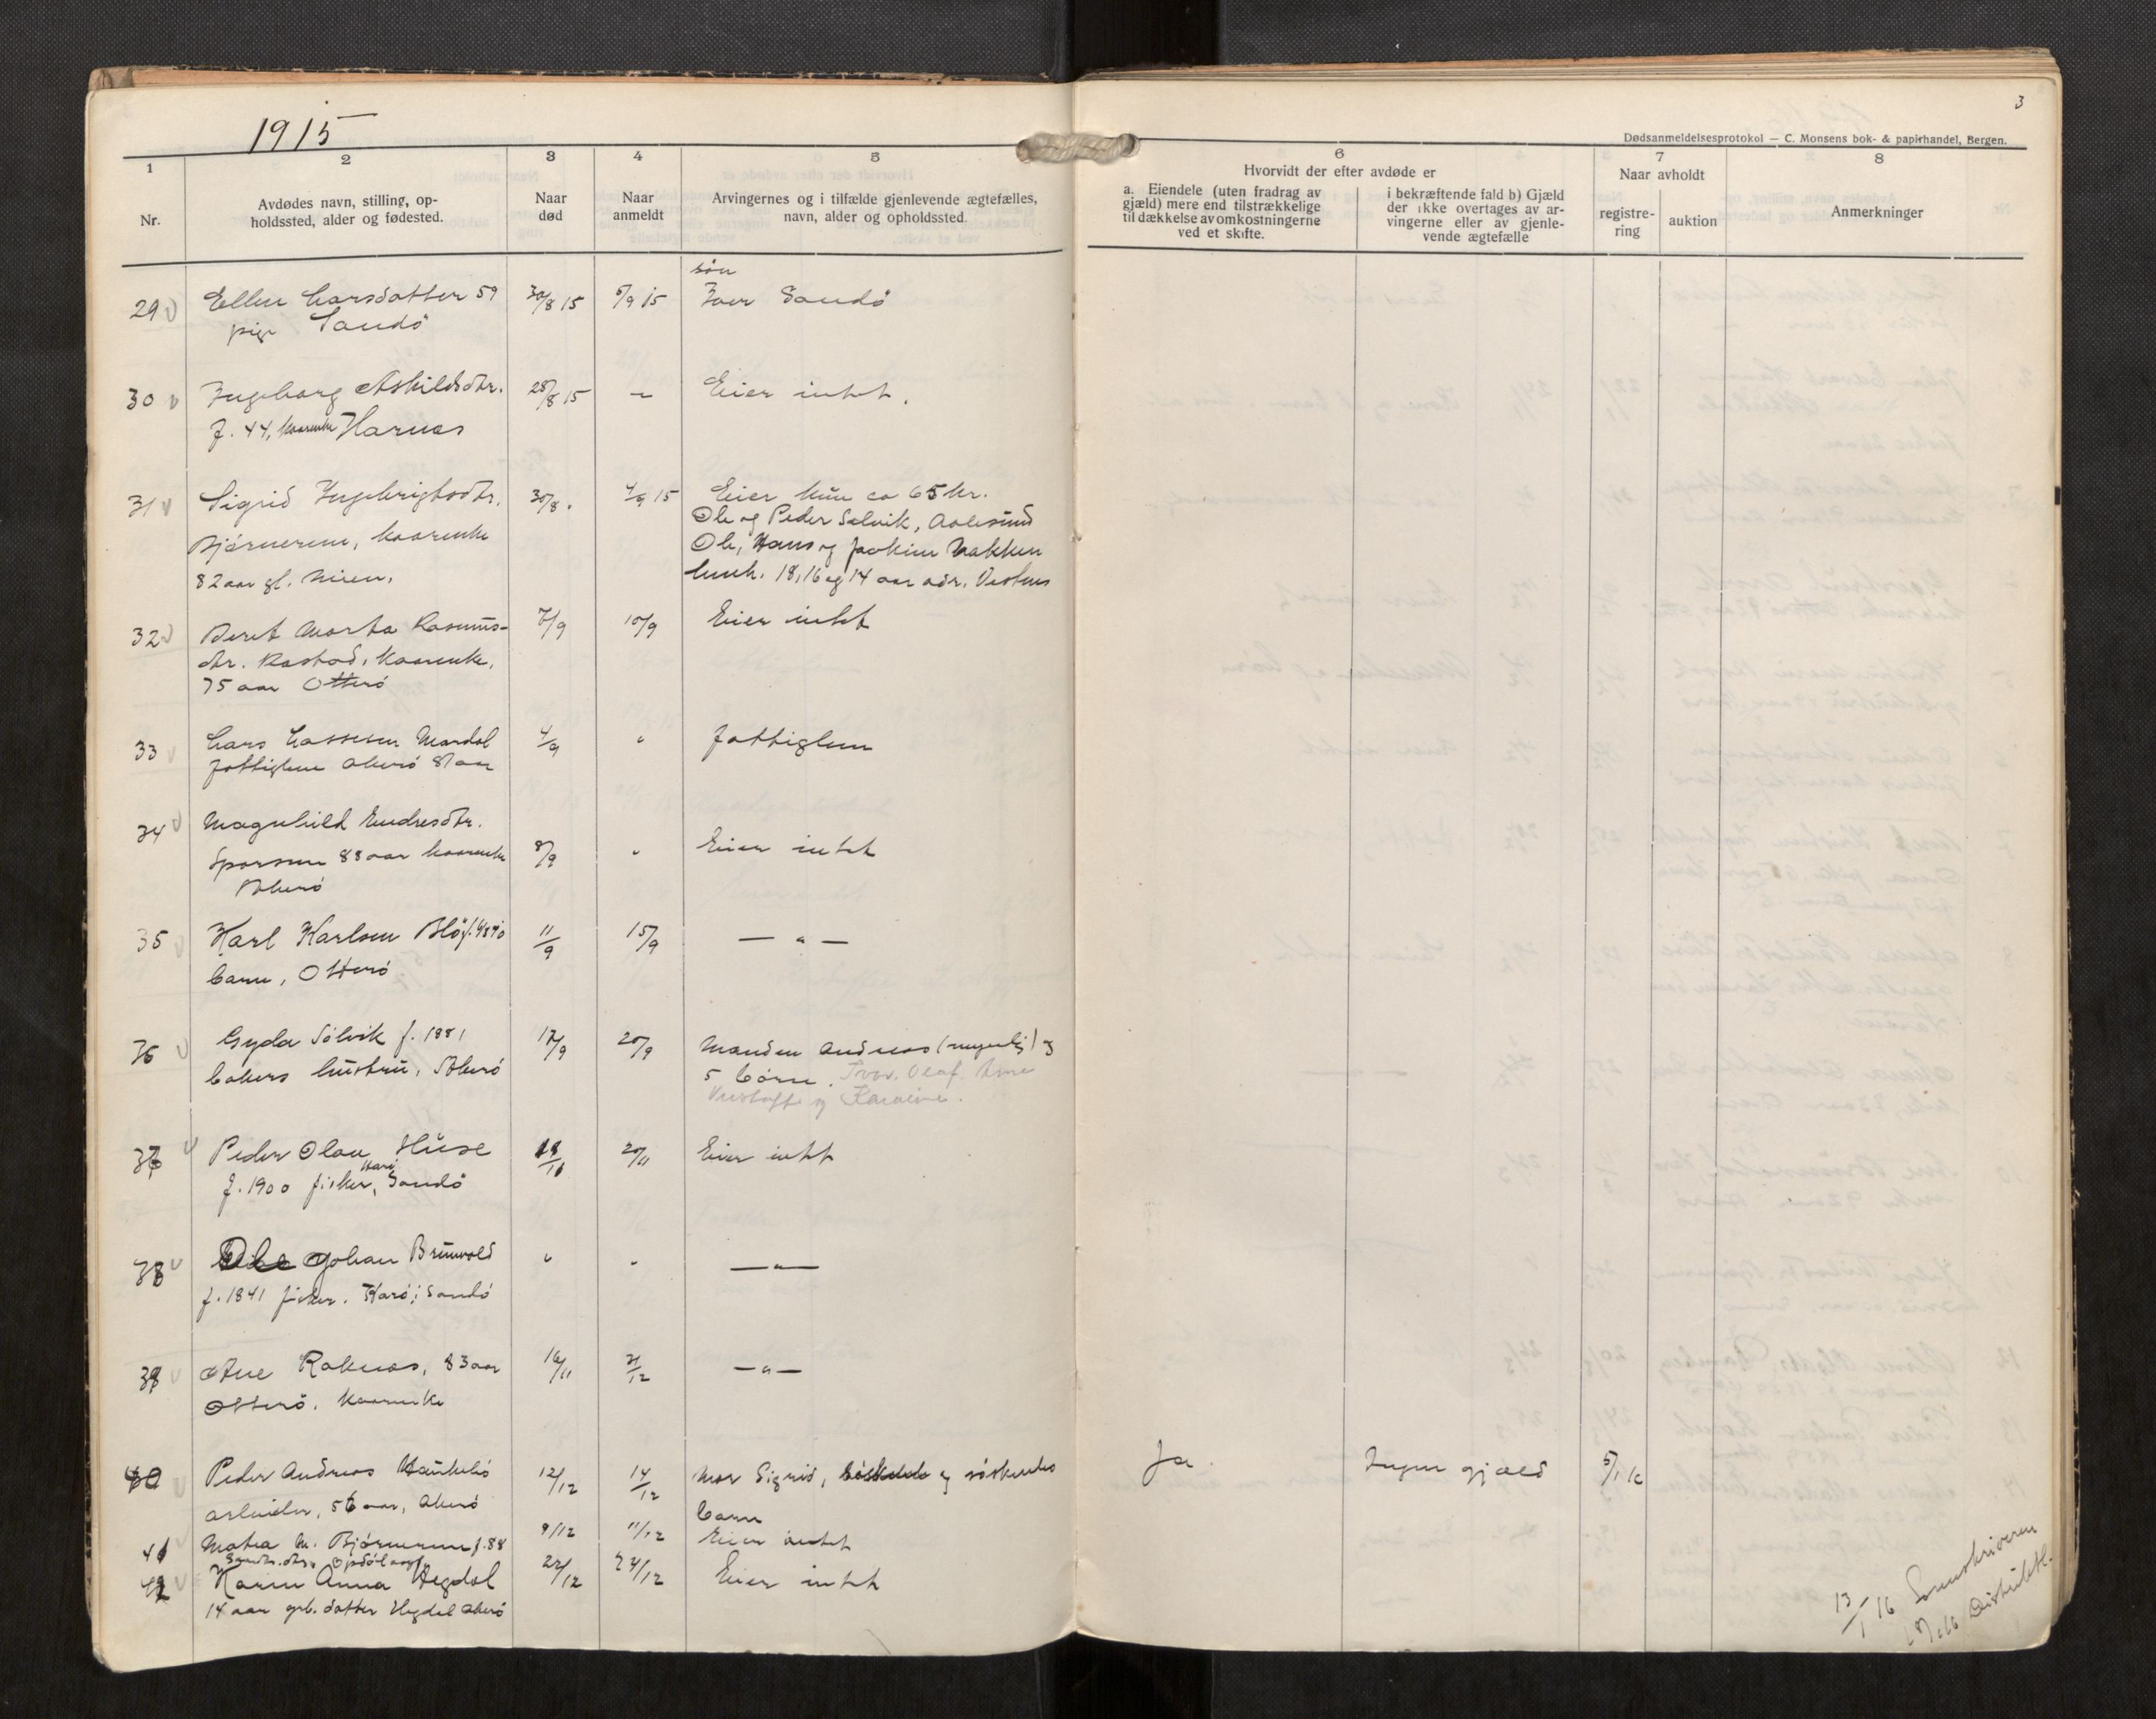 1915
3
Dødsanmeldelsesprotokol — C. Monsens bok- & papirhandel, Bergen.
1
Nr.
2
Avdødes navn, stilling, op-
holdssted, alder og fødested.
3
Naar
død
4
Naar
anmeldt
5
Arvingernes og i tilfælde gjenlevende ægtefælles,
navn, alder og opholdssted.
6
Hvorvidt der efter avdøde er
a. Eiendele (uten fradrag av
gjæld) mere end tilstrækkelige
til dækkelse av omkostningerne
ved et skifte.
i bekræftende fald b) Gjæld
der ikke overtages av ar-
vingerne eller av gjenle-
vende ægtefælle
7
Naar avholdt
registre-
ring
auktion
8
Anmerkninger
søn
29 Ellen Larsdatter 59 30/8 15 5/9 15 Iver Sandö
pige Sandö
30 Ingeborg Askildsdtr. 28/8 15 – Eier intet.
f. 44, kaarenke Harnes
31 Sigrid Ingebrigtsdtr. 30/8. 4/9 15 Eier kun ca 65 kr.
Ole og Peder Solvik, Aalesund
Bjørnerem, kaarenke Ole, Hans og Joakim Nakken
82 aar gl. Miren. 18, 16 og 14 aar adr. Vestnes
32 Beret Marta Rasmus- 7/9 10/9 Eier intet
dtr. Rastad, kaarenke,
75 aar Otterö
33 Lars Larssen Mordal 4/9 " Fattiglem
fattiglem Akerö 87 aar
34 Magnhild Endresdtr.
Sporsem 88 aar kaarenke 8/9 " Eier intet
Akerö
35 Karl Karlsen Blö 11/9 15/9 — " —
barn, Otterö
36 Gyda Sölvik f. 1881 17/9 20/9 Manden Andreas (myndig) og
bakers hustru, Akerö 5 børn. Ivar. Olaf. Arne
og
37 Peder Olau Huse 20/11 Eier intet
Harö
f. 1900 fisker, Sandö
38 Ole Johan Brunvold " " — " —
f. 1841 fisker. Harö i Sandö
39 Ane Raknes, 83 aar 16/11 — " —
Otterö. kaarenke
40 Peder Andreas Haukebö 12/12 14/12 Mor Sigrid, og søskendes Ja. Ingen gjæld 5/1 16
arbeider, 56 aar, Akerö barn
41 Matea M. Bjørnerem f. 88 9/12 11/12 Eier intet
42 Karen Anna Hegdal 22/12 24/12 Eier intet
14 aar grb. datter Hegdal Akerö
13/1 16 Sorenskriveren